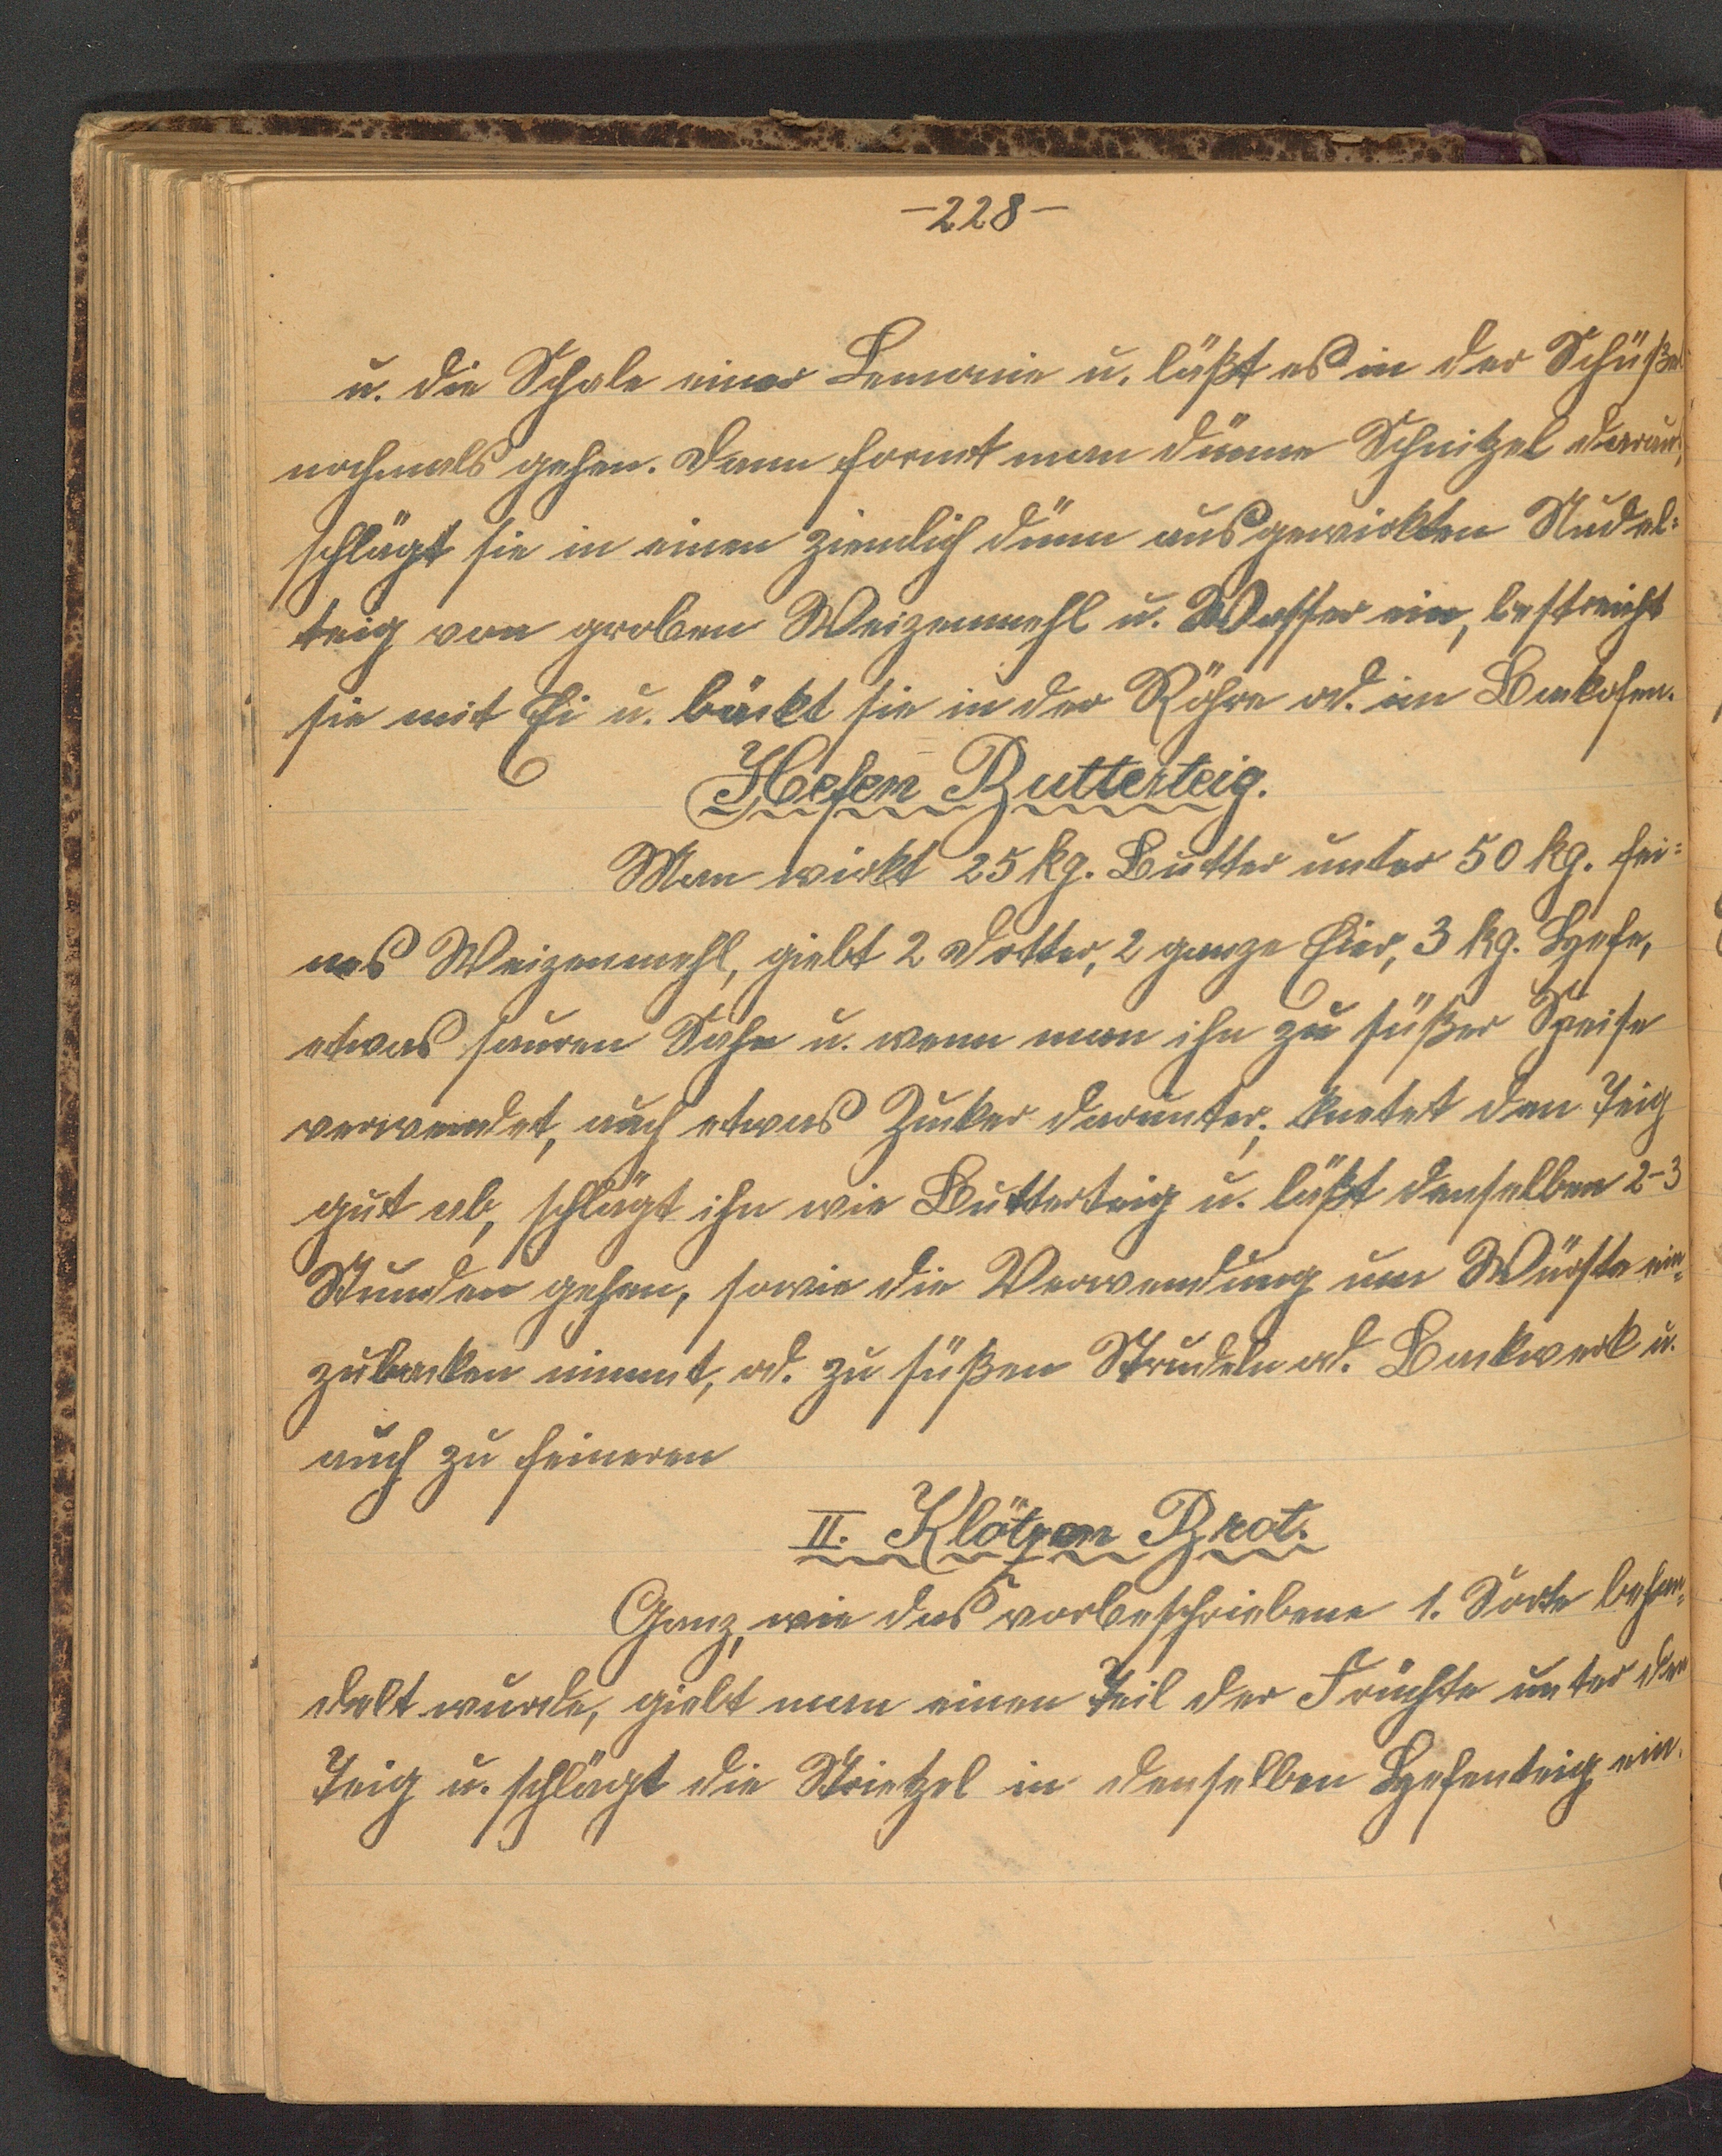 -228-
u. die Schale einer Lemonie u. läßt es in der Schüßel
nochmals gehen. Dann formt man dünne Schnitzel daraus,
schlägt sie in einen ziemlich dünn ausgewirkten Nudel=
teig von groben Weizenmehl u. Wasser ein, bestreicht
sie mit Ei u. bäckt sie in der Röhre od. im Backofen.
Hefen Butterteig.
Man wirkt 25 kg. Butter unter 50 kg. fei=
nes Weizenmehl, giebt 2 Dotter, 2 ganze Eier, 3 kg. Hefe,
etwas sauren Sahn u. wenn man ihn zu süßer Speise
verwendet, auch etwas Zucker darunter, knetet den Teig
gut ab, schlägt ihn wie Butterteig u. läßt denselben 2-3
Stunden gehen, sowie die Verwendung um Würste ein=
zubacken nimmt, od. zu süßen Strudeln od. Backwerk u.
auch zu feineren
II. Klötzen Brot.
Ganz, wie das vorbeschriebene 1. Sorte behan=
delt wurde, giebt man einen Teil der Früchte unter den
Teig u. schlägt die Strietzel in denselben Hefenteig ein.